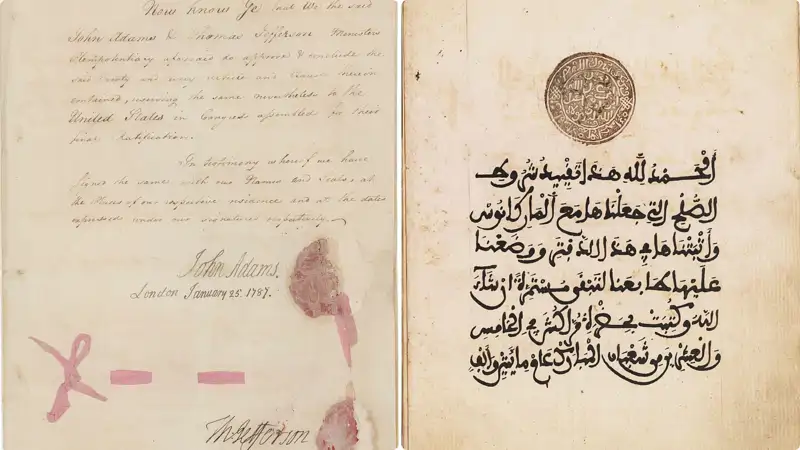 Now know Ye that We the said
John Adams & Thomas Jefferson Ministers
Plenipotentiary aforesaid do approve & conclude the
said Treaty and every article and clause therein
contained, reserving the same nevertheless to the
United States in Congress assembled for their
final Ratification.
In testimony whereof we have
signed the same with our Names and Seals, at
the places of our respective residence and at the dates
expressed under our signatures respectively.
John Adams.
London January 25. 1787.
Th: Jefferson
الحمد لله هذا تقييد شروط
الصلح التي جعلناها مع الماركانوس
وأثبتناها في هذا الدفتر ووضعنا
عليها طابعنا لتبقى مستمرة إن شاء
الله وكتبت بحضرة مراكش في الخامس
والعشرين من شعبان المبارك عام مايتين وألف